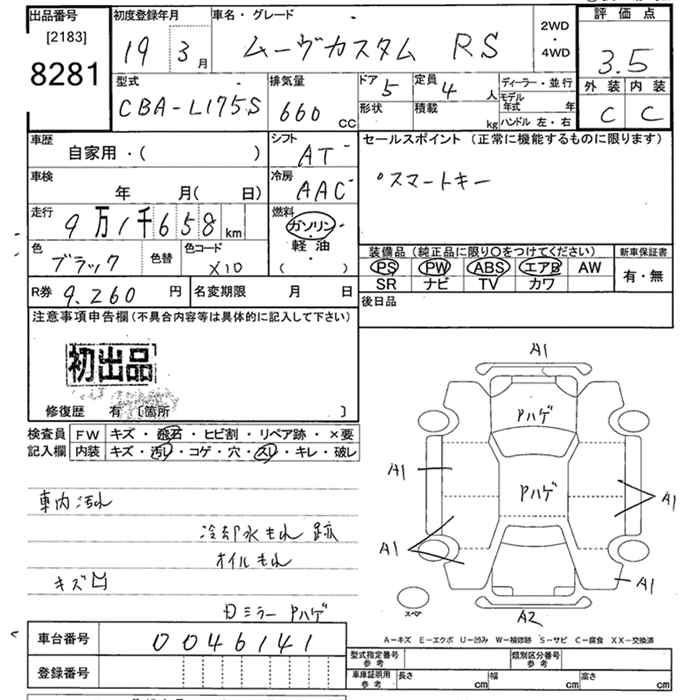 出品番号 初度登録年月 車名・グレード 2WD・4WD 評価点
[2183]
8281 19 3月 ムーヴカスタム RS 3.5
型式 排気量 ドア 定員 ディーラー・並行 外装 内装
CBA-L175S 660 CC 5 4人 モデル年式 年 C C
形状 積載 kg ハンドル 左・右
車歴 シフト セールスポイント (正常に機能するものに限ります)
自家用・( ) AT
車検 冷房 °スマートキー
年 月( 日) AAC
走行 燃料
9万1千658km ガソリン・軽油・( )
色 色替 色コード 装備品(純正品に限り○をつけてください) 新車保証書
ブラック X10 PS PW ABS エアB AW 有・無
SR ナビ TV カワ
R券 9.260円 名変期限 月 日 後日品
注意事項申告欄(不具合内容等は具体的に記入して下さい)
初出品
修復歴 有 [箇所 ]
検査員 FW キズ・飛石・ヒビ割・リペア跡・×要
記入欄 内装 キズ・汚レ・コゲ・穴・スレ・キレ・破レ
A1
Pハゲ
A1 Pハゲ A1
A1
A1
スペア A2
車内汚れ
冷却水もれ跡
オイルもれ
キズ凹
Dミラー Pハゲ
A-キズ E-エクボ U-凹み W-補修跡 S-サビ C-腐食 XX-交換済
車台番号 0046141
型式指定番号 参考 類別区分番号 参考
登録番号 車庫証明用 参考 長さ cm 幅 cm 高さ cm